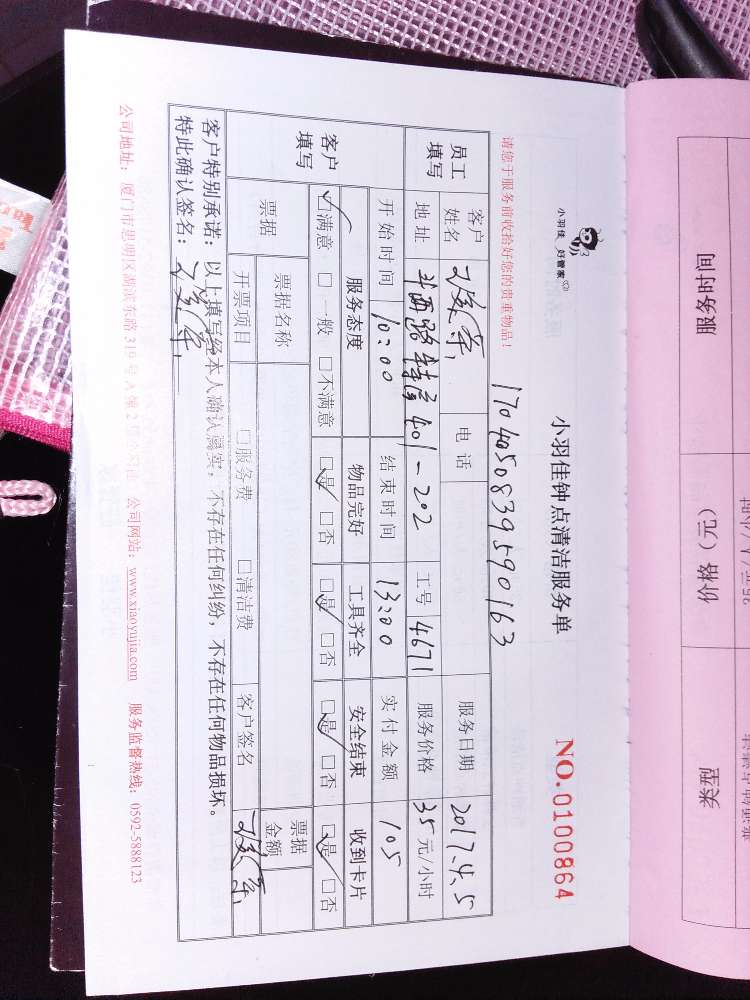 小羽佳 好管家
小羽佳钟点清洁服务单
NO.0100864
请您于服务前收拾好您的贵重物品！
1704050839590163
员工填写
客户姓名
电话
服务日期 2017.4.5
地址 斗西路 401-202
工号 4671
服务价格 35元/小时
客户填写
开始时间 10:00
结束时间 13:00
实付金额 105
服务态度 物品完好 工具齐全 安全结束 收到卡片
☑满意 □一般 □不满意 ☑是 □否 ☑是 □否 ☑是 □否 ☑是 □否
票据
票据名称
票据金额
开票项目 □服务费 □清洁费 客户签名
客户特别承诺：以上填写经本人确认属实，不存在任何纠纷，不存在任何物品损坏。
特此确认签名：
公司地址：厦门市思明区湖滨东路319号A幢2号 公司网站：www.xiaoyujia.com 服务监督热线：0592-5888123
服务时间
价格（元）
类型